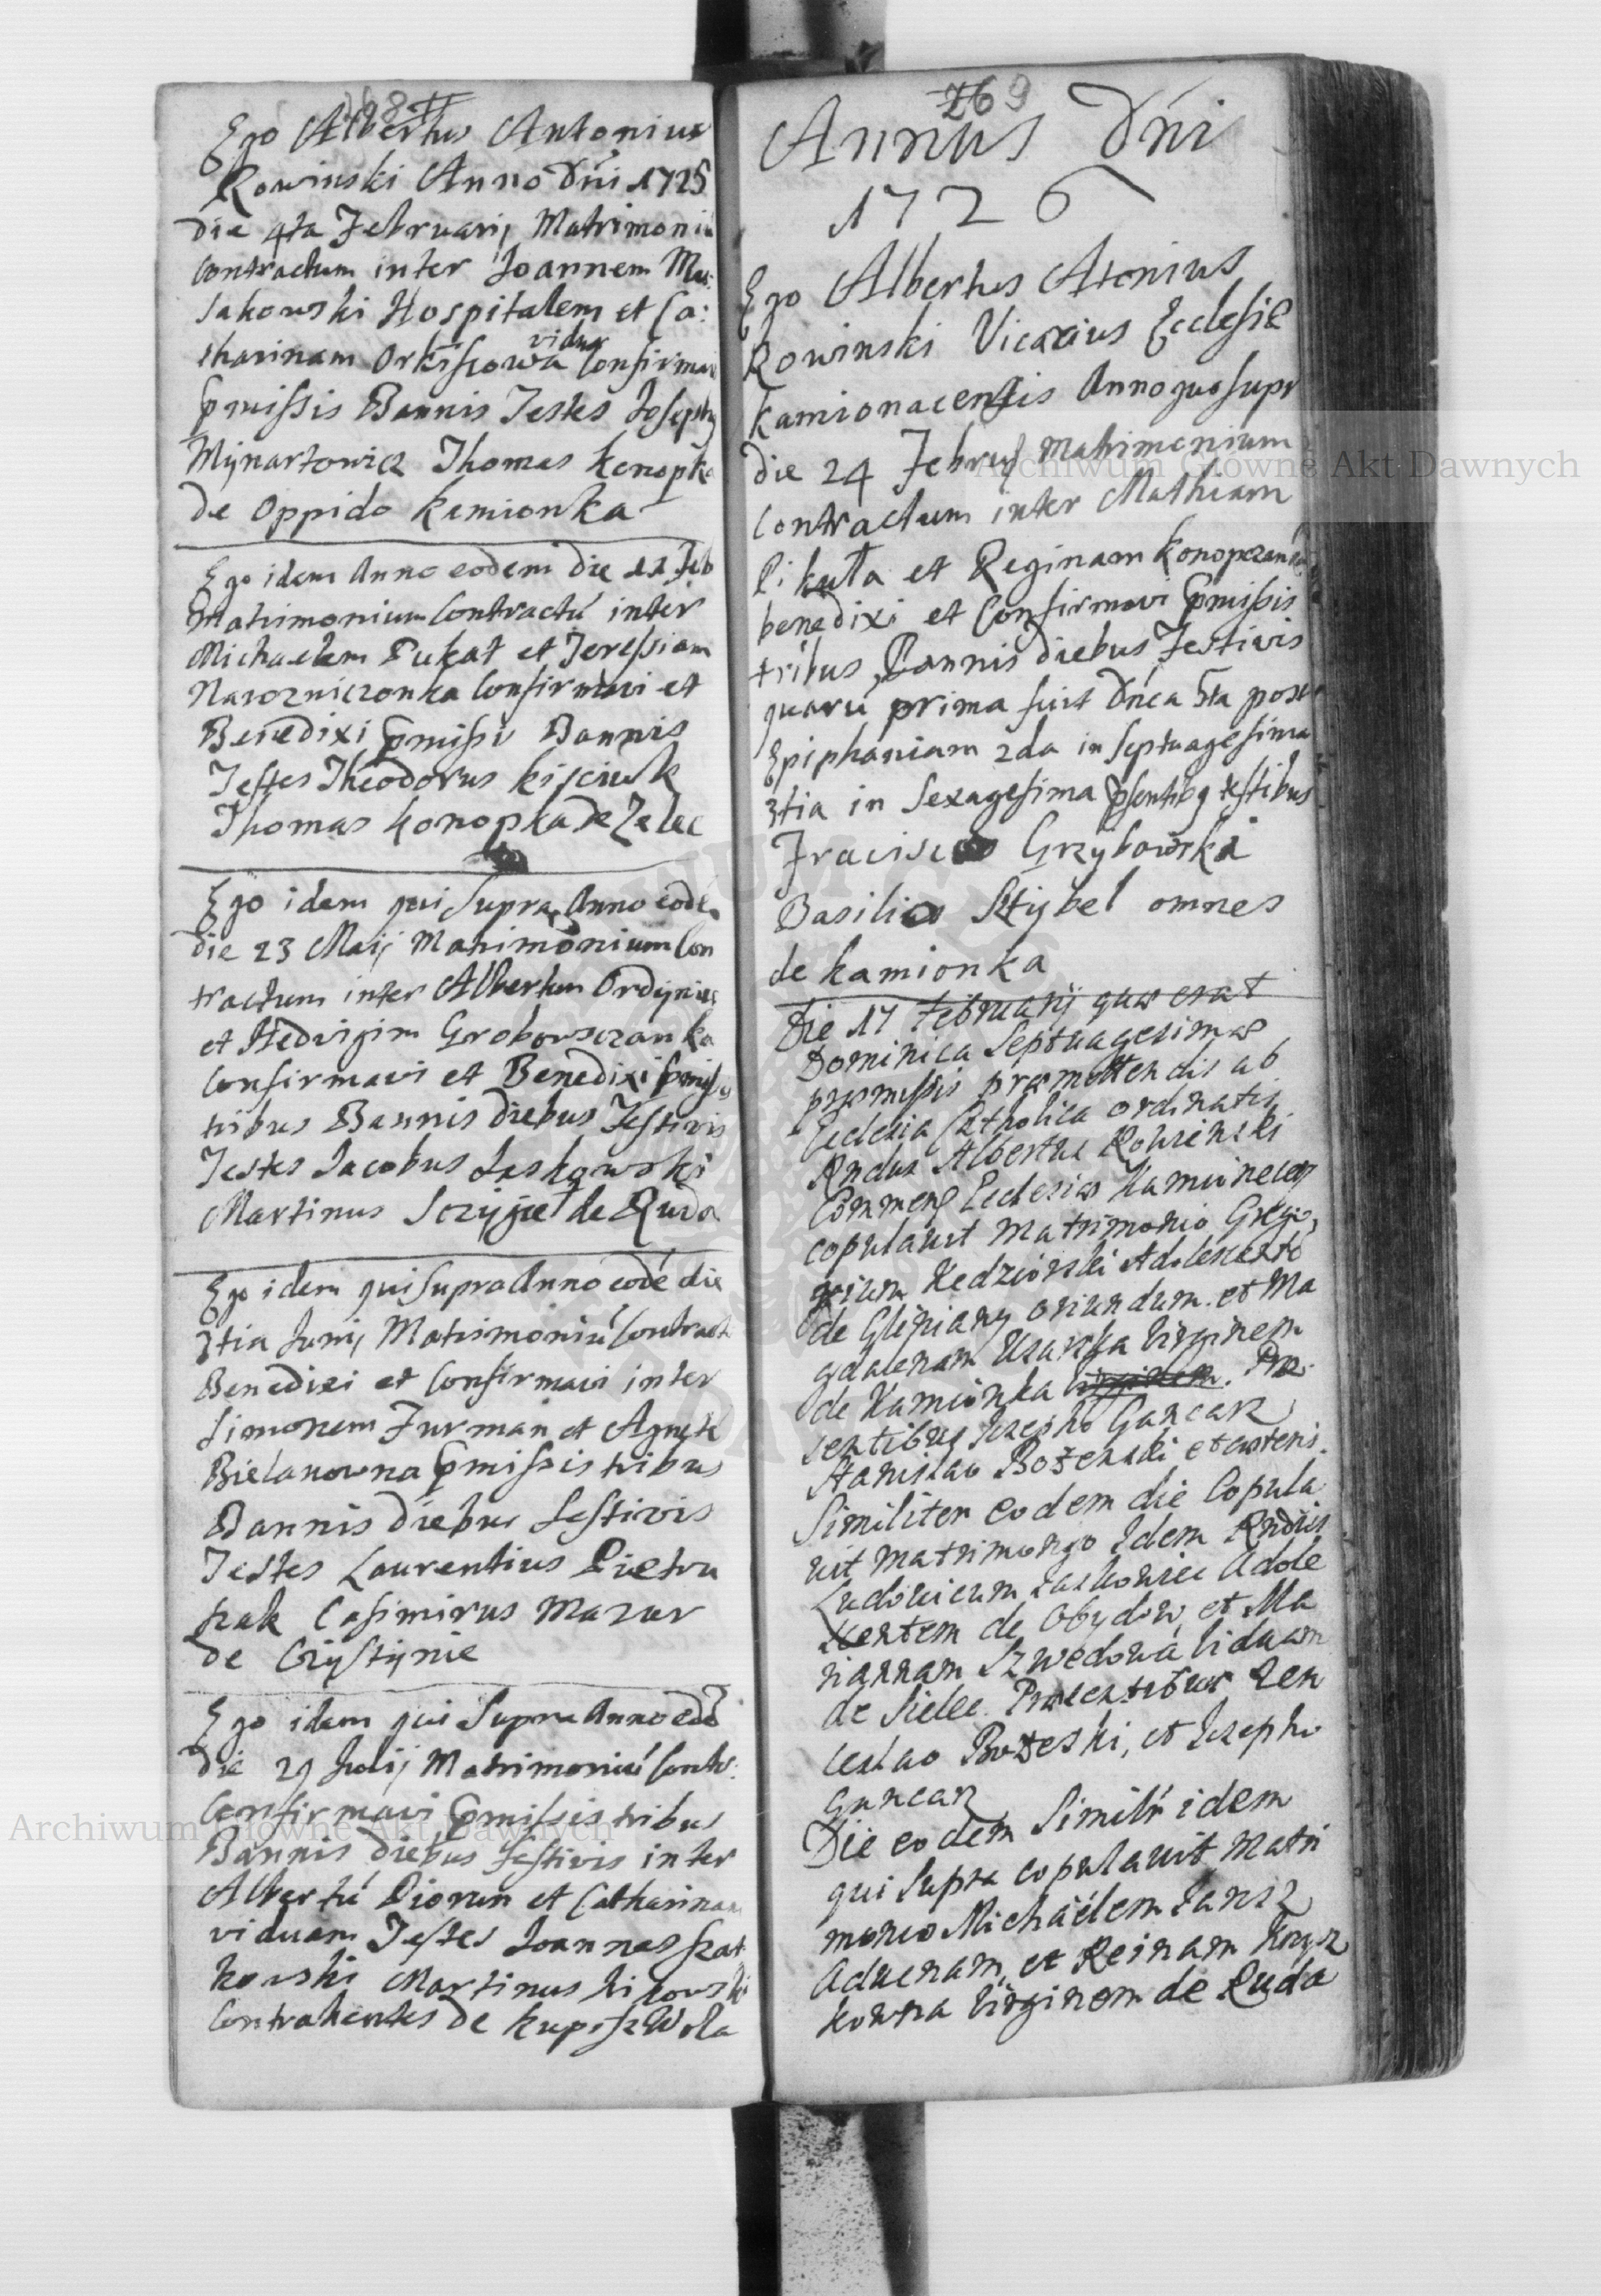 Ego Albertus Antonius
Rowinski Anno Dni 1725
die 4ta Februarij Matrimoniu
contractum inter Joannem Ma:
sakowski Hospitalem et Ca:
tharinam Orkiscowa vidua Confirmavi
pmissis Bannis Testes Josephg
Mynartowicz Thomas Konopka
de Oppido Kamionka
Ego idem Anno eodem die 11 Feb
Matrimonium Contractú inter
Michaelem Pukat et Teressiam
Narozniczonka Confirmavi et
Benedixi pmissis Bannis
Testes Theodorus Kisciuk
Thomas Konopka de Zelec
Ego idem qui Supra Anno eodē
die 23 Maij Matrimonium Con
tractum inter Albertum Ordyniec
et Hedvigim Grobowczanka
Confirmavi et Benedixi pmissis
tribus Bannis diebus Festivis
Testes Jacobus Laskowski
Martinus de Ruda
Ego idem qui Supra Anno eodē die
3tia Junij Matrimoniú Contract
Benedixi et Confirmavi inter
Simonem Furman et Agnete
Bielanowna pmissis tribus
Bannis diebus Festivis
Testes Laurentius Pietru
szak Casimirus Mazur
de Czystynie
Ego idem qui Supra Anno eodē
die 29 Julij Matrimoniú Contr:
Confirmavi pmissis tribus
Bannis diebus Festivis inter
Albertú Piorun et Catharinam
viduam Testes Joannes Szat
kowski Martinus
Contrahentes de Kupisz Wola
269
Annus Dni
1726
Ego Albertus Atonius
Rowinski Vicarius Ecclesie
Kamionacensis Anno quo supr
die 24 Febrij Matrimonium
Contractum inter Mathiam
Pikuła et Reginam Konopczanka
benedixi et Confirmavi pmissis
tribus Bannis diebus Festivis
quarú prima fuit Dnica 5ta post
Epiphaniam 2da in Septuagesima
3tia in Sexagesima psentibg testibus
Fracisco Grzybowski
Basilio Sztybel omnes
de Kamionka
Die 17 Februarij quæ erat
Dominica Septuagesimæ
præmissis præmittendis ab
Ecclesia Catholica ordinatis
Rndus Albertus Rowienski
Commens Ecclesiæ Kamionecen
copulavit Matrimonio Grego,
rium Kedziorski Adolescentē
de Gliniany oriundum et Ma
gdalenam Uzarska virginem
de Kamionka Præ
sentibus Josepho Gancarz
Stanislao Bożenski et cæteris.
Similiter eodem die Copula
vit Matrimonyo Idem Rndus
Ludovicum Jaskowiec Adole
scentem de Obydow, et Ma
riannam Szwedowá Viduam
de Sielec. Præsentibus Wen
ceslao Bożeski, et Josepho
Gancarz
Die eodem Similr idem
qui Supra copulavit Matri
monio Michaëlem Janisz
Advenam, et Reinam Krysz
kowna Virginem de Ruda
Archiwum Główne Akt Dawnych
Archiwum Główne Akt Dawnych